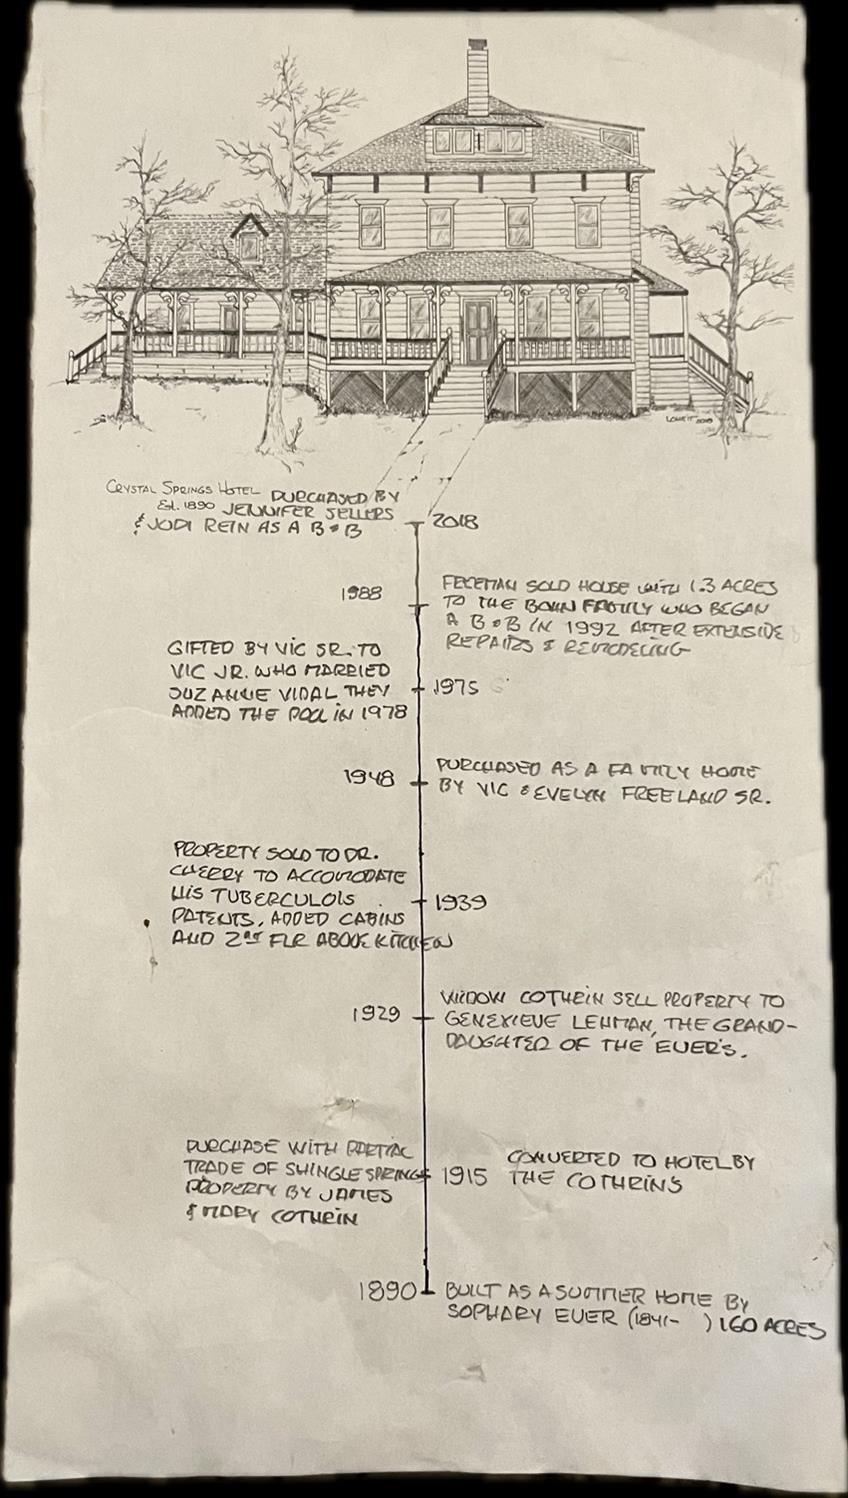 CRYSTAL SPRINGS HOTEL PURCHASED BY
Est. 1890 JENNIFER SELLERS
& JODI REIN AS A B & B
2018
1988
FREEMAN SOLD HOUSE WITH 1.3 ACRES
TO THE BOHN FAMILY WHO BEGAN
A B & B IN 1992 AFTER EXTENSIVE
REPAIRS & REMODELING
GIFTED BY VIC SR. TO
VIC JR. WHO MARRIED
SUZANNE VIDAL THEY
ADDED THE POOL IN 1978
1975
1948
PURCHASED AS A FAMILY HOME
BY VIC & EVELYN FREELAND SR.
PROPERTY SOLD TO DR.
CHERRY TO ACCOMODATE
HIS TUBERCULOIS
PATENTS, ADDED CABINS
AND 2ND FLR ABOVE KITCHEN
1939
1929
WIDOW COTHRIN SELL PROPERTY TO
GENEVIEVE LEHMAN, THE GRAND-
DAUGHTER OF THE EUER'S.
PURCHASE WITH PARTIAL
TRADE OF SHINGLE SPRINGS
PROPERTY BY JAMES
& MARY COTHRIN
1915
CONVERTED TO HOTEL BY
THE COTHRIN'S
1890
BUILT AS A SUMMER HOME BY
SOPHARY EUER (1841- ) 160 ACRES